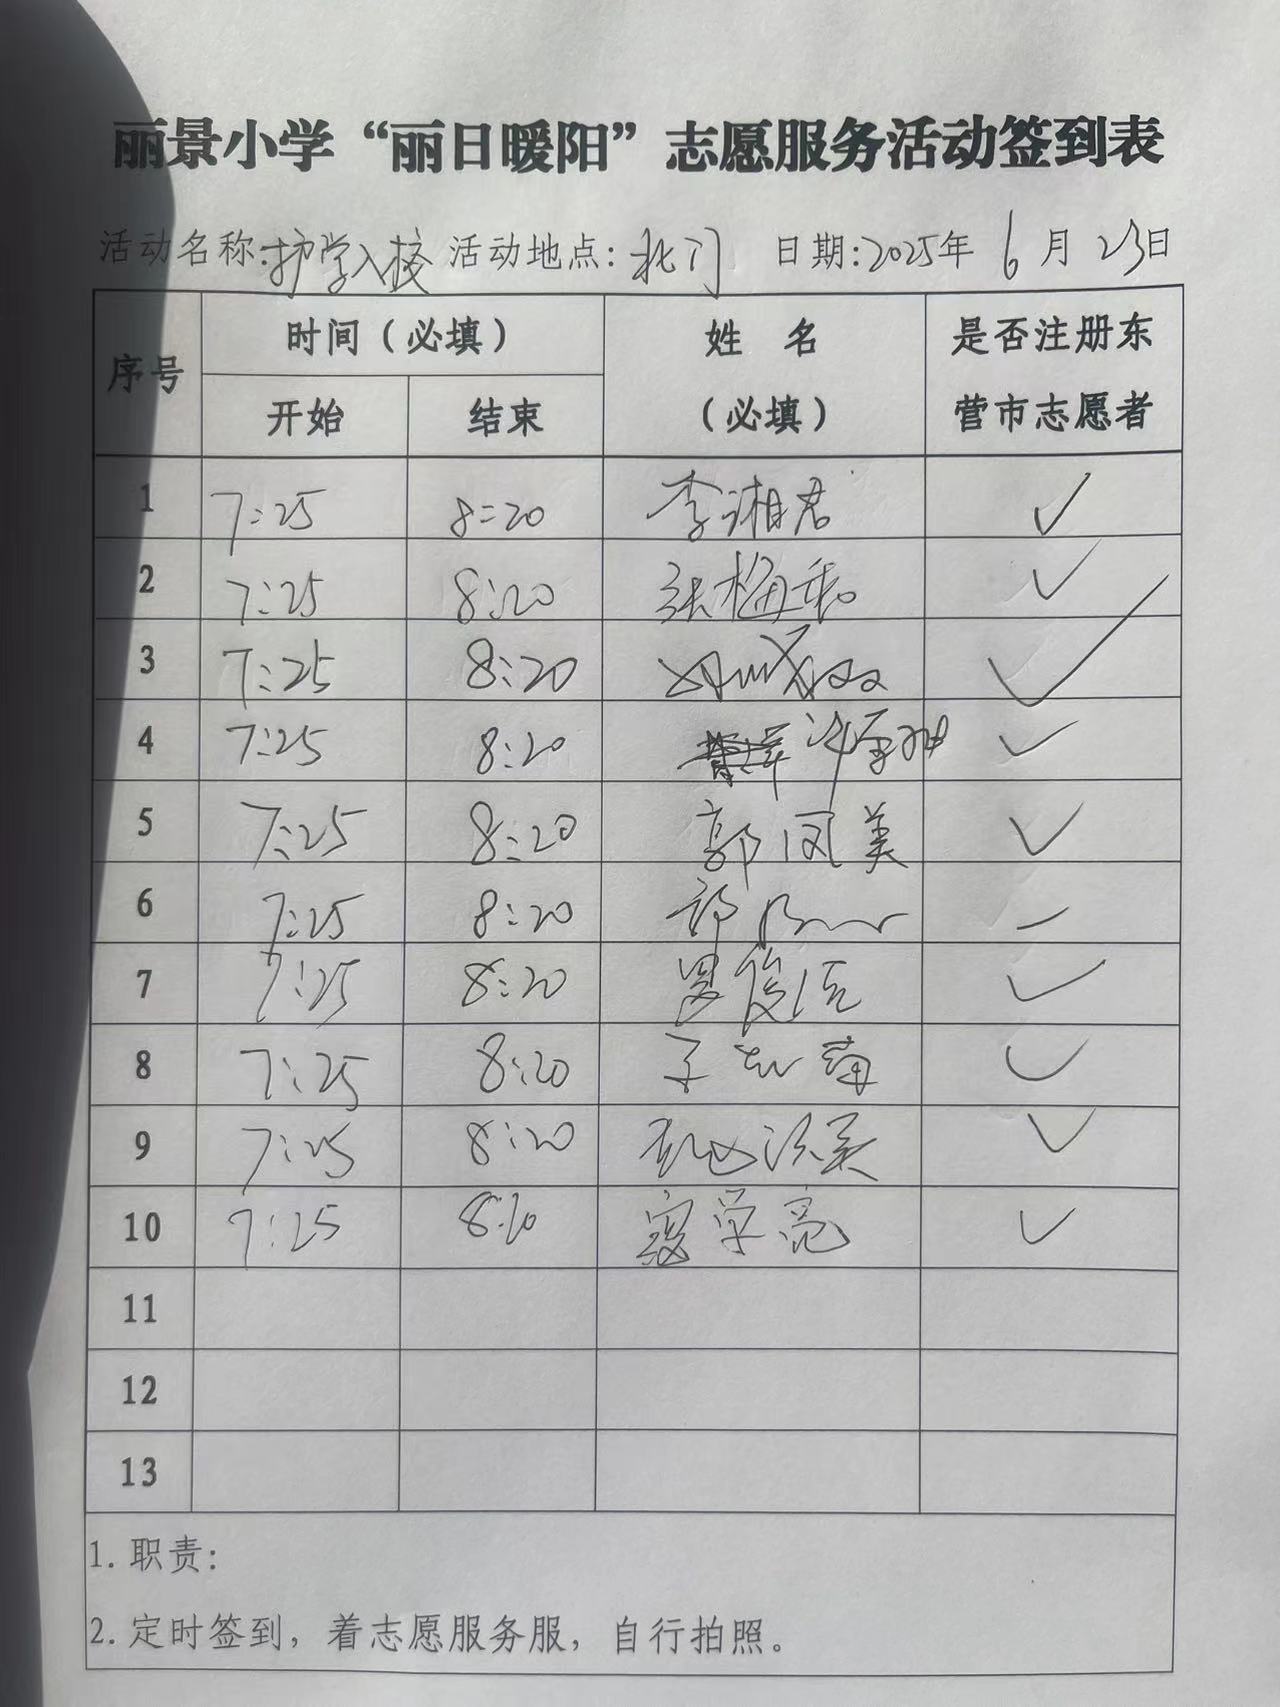 丽景小学“丽日暖阳”志愿服务活动签到表
活动名称:护学入校 活动地点:北门 日期:2025年6月23日
序号 时间(必填) 姓名(必填) 是否注册东营市志愿者
开始 结束
1 7:25 8:20 李湘君 ✓
2 7:25 8:20 张梅 ✓
3 7:25 8:20 ✓
4 7:25 8:20 ✓
5 7:25 8:20 郭凤美 ✓
6 7:25 8:20
7 7:25 8:20 ✓
8 7:25 8:20 ✓
9 7:25 8:20 ✓
10 7:25 8:20 寇学亮 ✓
11
12
13
1. 职责:
2. 定时签到，着志愿服务服，自行拍照。